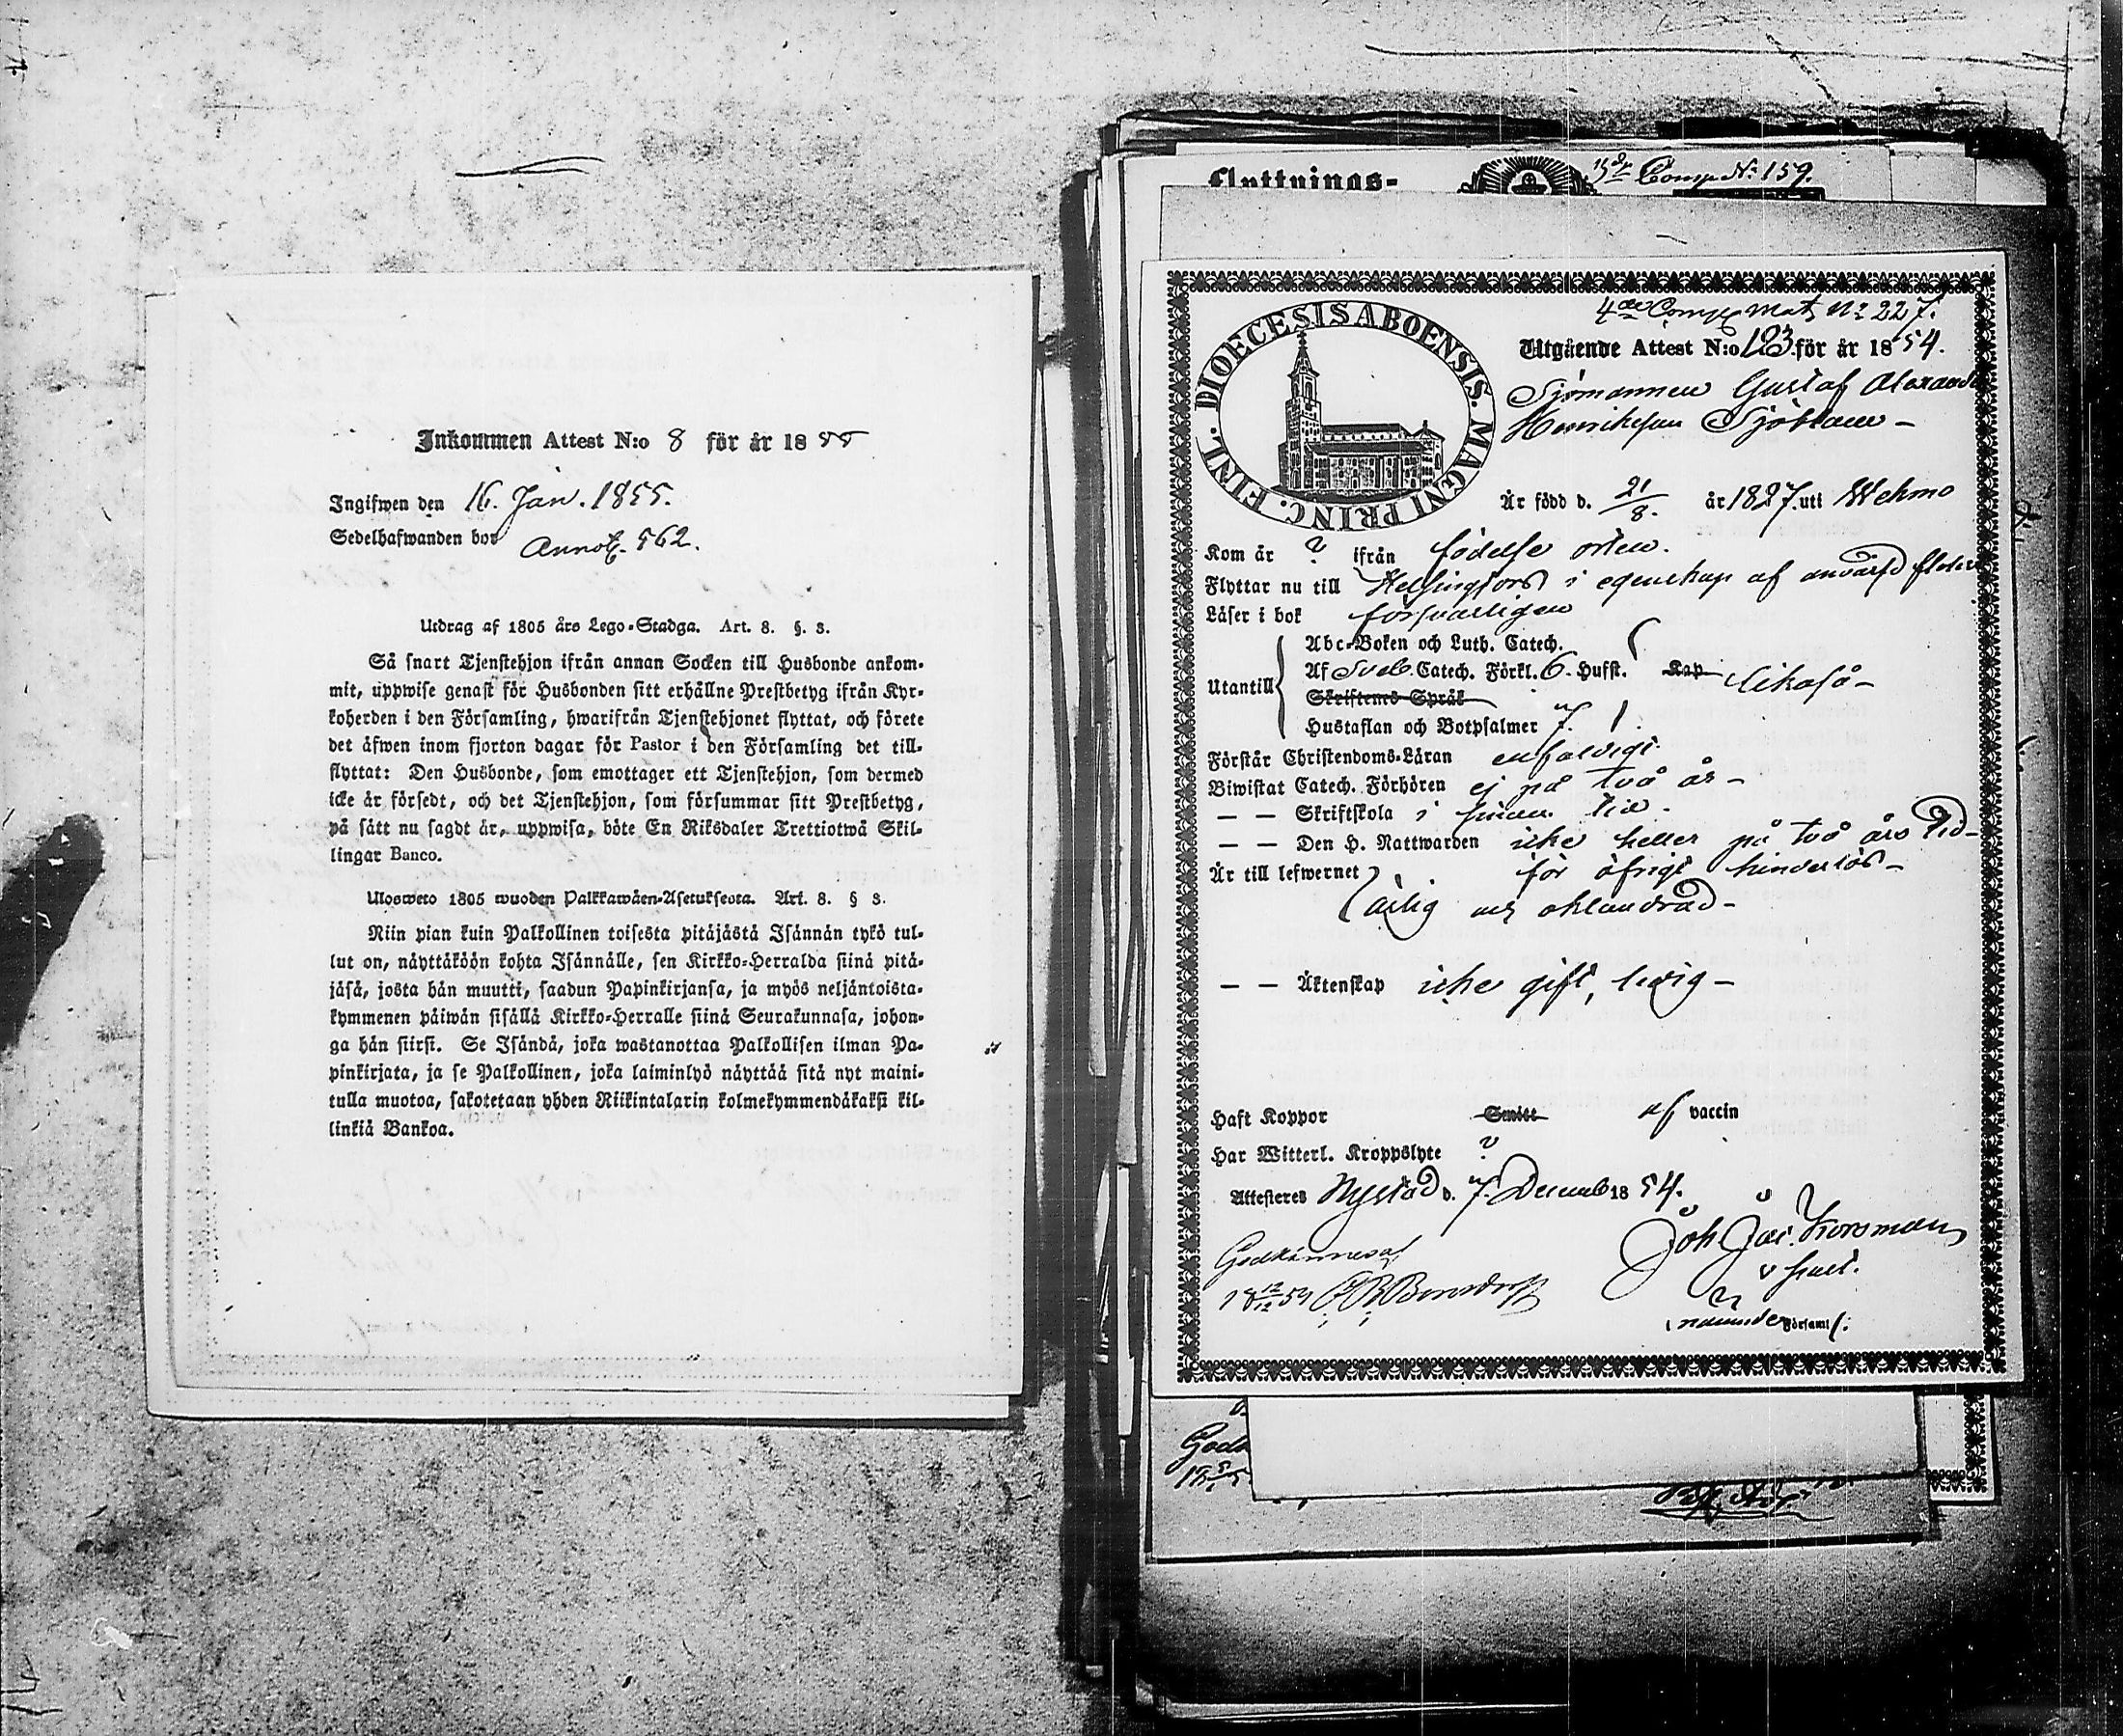 Inkommen Attest N:o 8 för år 1855
Ingifwen den 16. Jan. 1855.
Sedelhafwanden bor Annot. 562.
Utdrag af 1805 års Lego-Stadga. Art. 8. §. 3.
Så snart Tjenstehjon ifrån annan Socken till Husbonde ankom-
mit, uppwise genast för Husbonden sitt erhållne Prestbetyg ifrån Kyr-
koherden i den Församling, hwarifrån Tjenstehjonet flyttat, och förete
det äfwen inom fjorton dagar för Pastor i den Församling det till-
flyttat: Den Husbonde, som emottager ett Tjenstehjon, som dermed
icke är försedt, och det Tjenstehjon, som försummar sitt Prestbetyg,
på sätt nu sagdt är, uppwisa, böte En Riksdaler Trettiotwå Skil-
lingar Banco.
Ulosweto 1805 wuoden Palkkawäen-Asetuksesta. Art. 8. § 3.
Niin pian kuin Palkollinen toisesta pitäjästä Isännän tykö tul-
lut on, näyttäköön kohta Isännälle, sen Kirkko-Herralda siinä pitä-
jäsä, josta hän muutti, saadun Papinkirjansa, ja myös neljäntoista-
kymmenen päiwän sisällä Kirkko-Herralle siinä Seurakunnasa, johon-
ga hän siirsi. Se Isändä, joka wastanottaa Palkollisen ilman Pa-
pinkirjata, ja se Palkollinen, joka laiminlyö näyttää sitä nyt maini-
tulla muotoa, sakotetaan yhden Riikintalarin kolmekymmendäkaksi kil-
linkiä Bankoa.
Flyttnings-
15de Comp. N: 159.
4de Comp matr N: 227.
DIOECESIS ABOENSIS. MAGNI PRINC. FINL.
Utgående Attest N:o 123. för år 1854.
Sjömannen Gustaf Alexander
Henriksson Sjöblom -
Är född d. 21/8. år 1827. uti Wehmo
Kom år ? ifrån födelse orten.
Flyttar nu till Helsingfors i egenskap af
Läser i bok försvarligen
Abc-Boken och Luth. Catech.
Utantill Af Sveb. Catech. Förkl. 6. Hufst. Kap likaså -
Skriftenes Språk
Hustaflan och Botpsalmer 7.
Förstår Christendoms-Läran enfaldigt.
Biwistat Catech. Förhören ej på två år -
— — Skriftskola i sinom tid.
— — Den H. Nattwarden icke heller på två års tid -
Är till lefwernet för öfrigt hinderlös -
ärlig och oklandrad -
— — Äktenskap icke gift, ledig -
Haft Koppor Smitt af vaccin
Har Witterl. Kroppslyte ?
Attesteres Nystad d. 7. Decemb 1854.
Joh Jac. Forsman
v past.
Godkännes af
18 12/12 54
Församl.